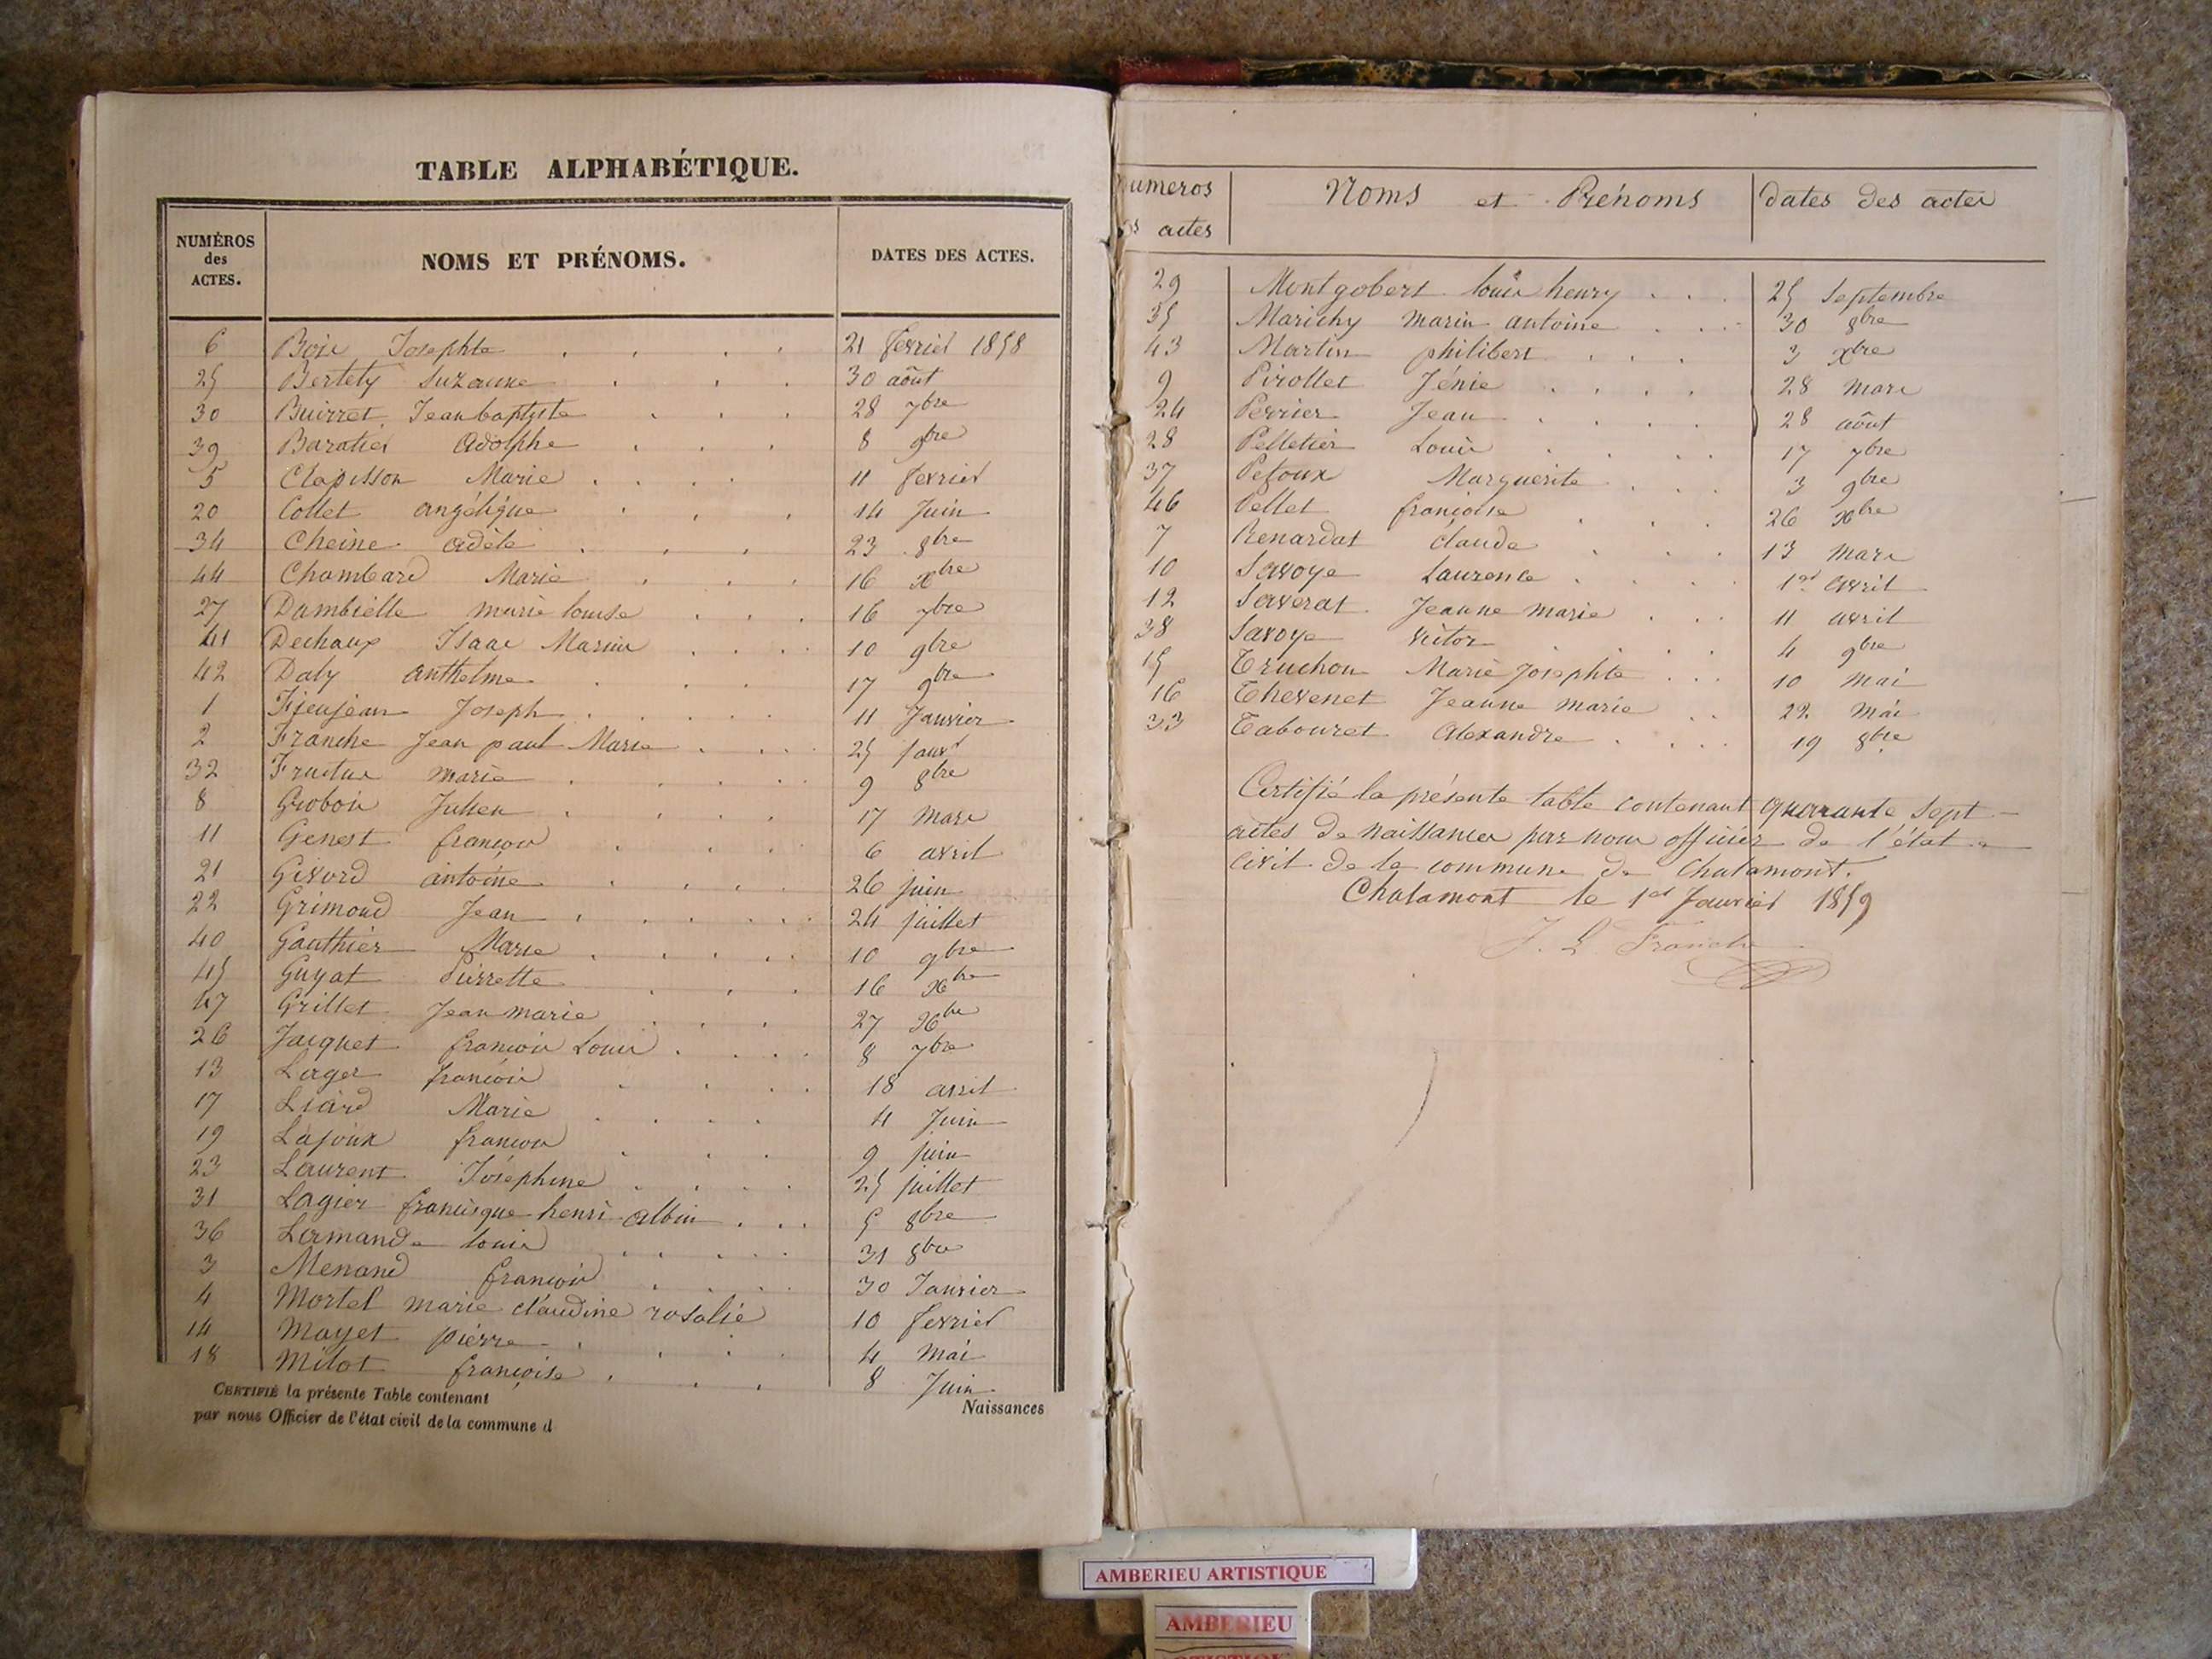 TABLE ALPHABÉTIQUE.
NUMÉROS des ACTES. NOMS ET PRÉNOMS. DATES DES ACTES.
6 Boje Josephte 21 fevrier 1858
25 Bertety Suzanne 30 août
30 Buirret Jean baptiste 28 7bre
39 Baratier Adolphe 8 9bre
5 Clapisson Marie 11 fevrier
20 Collet angélique 14 Juin
34 Cheine adèle 23 8bre
44 Chambard Marie 16 xbre
27 Dambielle marie louise 16 7bre
41 Dechaux Isaac Marin 10 9bre
42 Daly anthelme 17 9bre
1 Fijeujean Joseph 11 Janvier
2 Franche Jean paul Marie 25 janvr
32 Fructus marie 9 8bre
8 Grobois Julien 17 mars
11 Genest françois 6 avril
21 Givord antoine 26 juin
22 Grimoud Jean 24 juillet
40 Gauthier Marie 10 9bre
45 Guyat Pierrette 16 xbre
47 Grillet Jean marie 27 xbre
26 Jacquet françois Louis 8 7bre
13 Lager françois 18 avril
17 Liard Marie 4 Juin
19 Lajoux françois 9 juin
23 Laurent Joséphine 25 juillet
31 Lagier francisque henri albin 5 8bre
36 Lermande louis 31 8bre
3 Menand françois 30 Janvier
4 Mortel marie claudine rosalie 10 fevrier
14 Mayet pierre 4 Mai
18 Milot françoise 8 Juin
CERTIFIÉ la présente Table contenant Naissances
par nous Officier de l'état civil de la commune d
numeros des actes Noms et Prénoms dates des actes
29 Montgobert louis henry 25 Septembre
35 Marichy marin antoine 30 8bre
43 Martin philibert 3 xbre
9 Pirollet Jénie 28 mars
24 Perrier Jean 28 août
28 Pelletier Louis 17 7bre
37 Petoux Marguerite 3 9bre
46 Pellet françoise 26 xbre
7 Renardat Claude 13 mars
10 Savoye Laurence 1er avril
12 Saverat Jeanne marie 11 avril
38 Savoye victor 4 9bre
15 Truchon Marie Josephte 10 mai
16 Thevenet Jeanne marie 22 mai
33 Tabouret Alexandre 19 8bre
Certifié la présente table contenant quarante sept
actes de naissances par nous officier de l'état
civil de la commune de Chalamont.
Chalamont le 1er Janvier 1859
J. L. Franche
AMBERIEU ARTISTIQUE
AMBERIEU
ARTISTIQUE